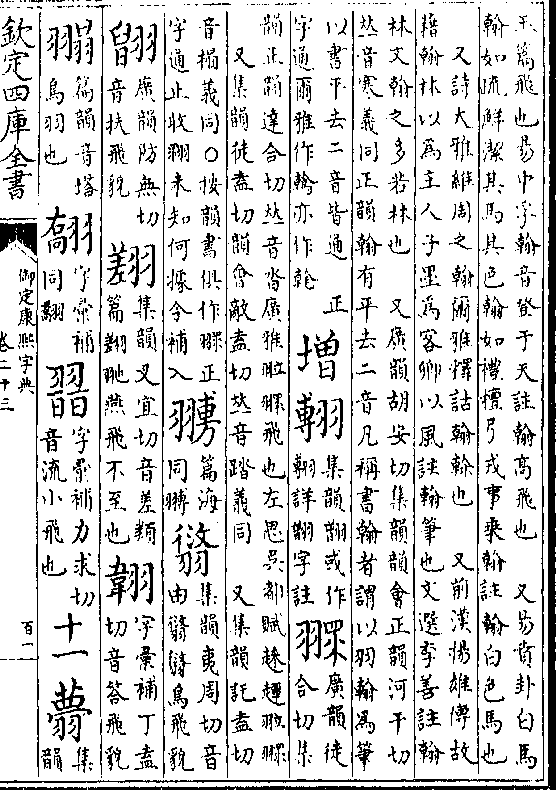 玉篇飛也易中孚翰音登于天註翰高飛也　又易賁卦白馬
翰如疏鮮潔其馬其色翰如禮檀弓戎事乘翰註翰白色馬也
又詩大雅維周之翰爾雅釋詁翰榦也　又前漢揚雄傳故
藉翰林以爲主人子墨爲客卿以風註翰筆也文選李善註翰
林文翰之多若林也　又廣韻胡安切集韻韻會正韻河干切
𠀤音寒義同正韻翰有平去二音凡稱書翰者謂以羽翰爲筆
以書平去二音皆通　正
字通爾雅作鶾亦作䮧
增
翶
集韻翺或作
翶詳翺字註
𦑇
廣韻徒
合切集
韻正韻達合切𠀤音沓廣雅𦐇𦑇飛也左思吳都賦趁趯𦐇𦑇
又集韻徒盍切韻會敵盍切𠀤音蹋義同　又集韻託盍切
音榻義同○按韻書俱作𦑇正
字通止收翤未知何據今補入
篇海
同䎗
集韻夷周切音
由𦒅𦒅鳥飛貌
廣韻防無切
音扶飛貌
集韻叉宜切音差類
篇䎕𦐂燕飛不至也
字彙補丁盍
切音答飛貌
篇韻音塔
鳥羽也
字彙補
同翻
字彙補力求切
音流小飛也
十一
集
韻
欽定四庫全書
御定康熙字典
卷二十三
百一